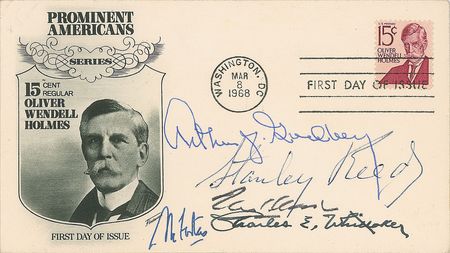 PROMINENT
AMERICANS
SERIES
15 CENT
REGULAR
OLIVER
WENDELL
HOLMES
FIRST DAY OF ISSUE
WASHINGTON, DC
MAR
8
1968
FIRST DAY OF ISSUE
15¢
OLIVER
WENDELL
HOLMES
Arthur J. Goldberg
Stanley Reed
Charles E. Whittaker